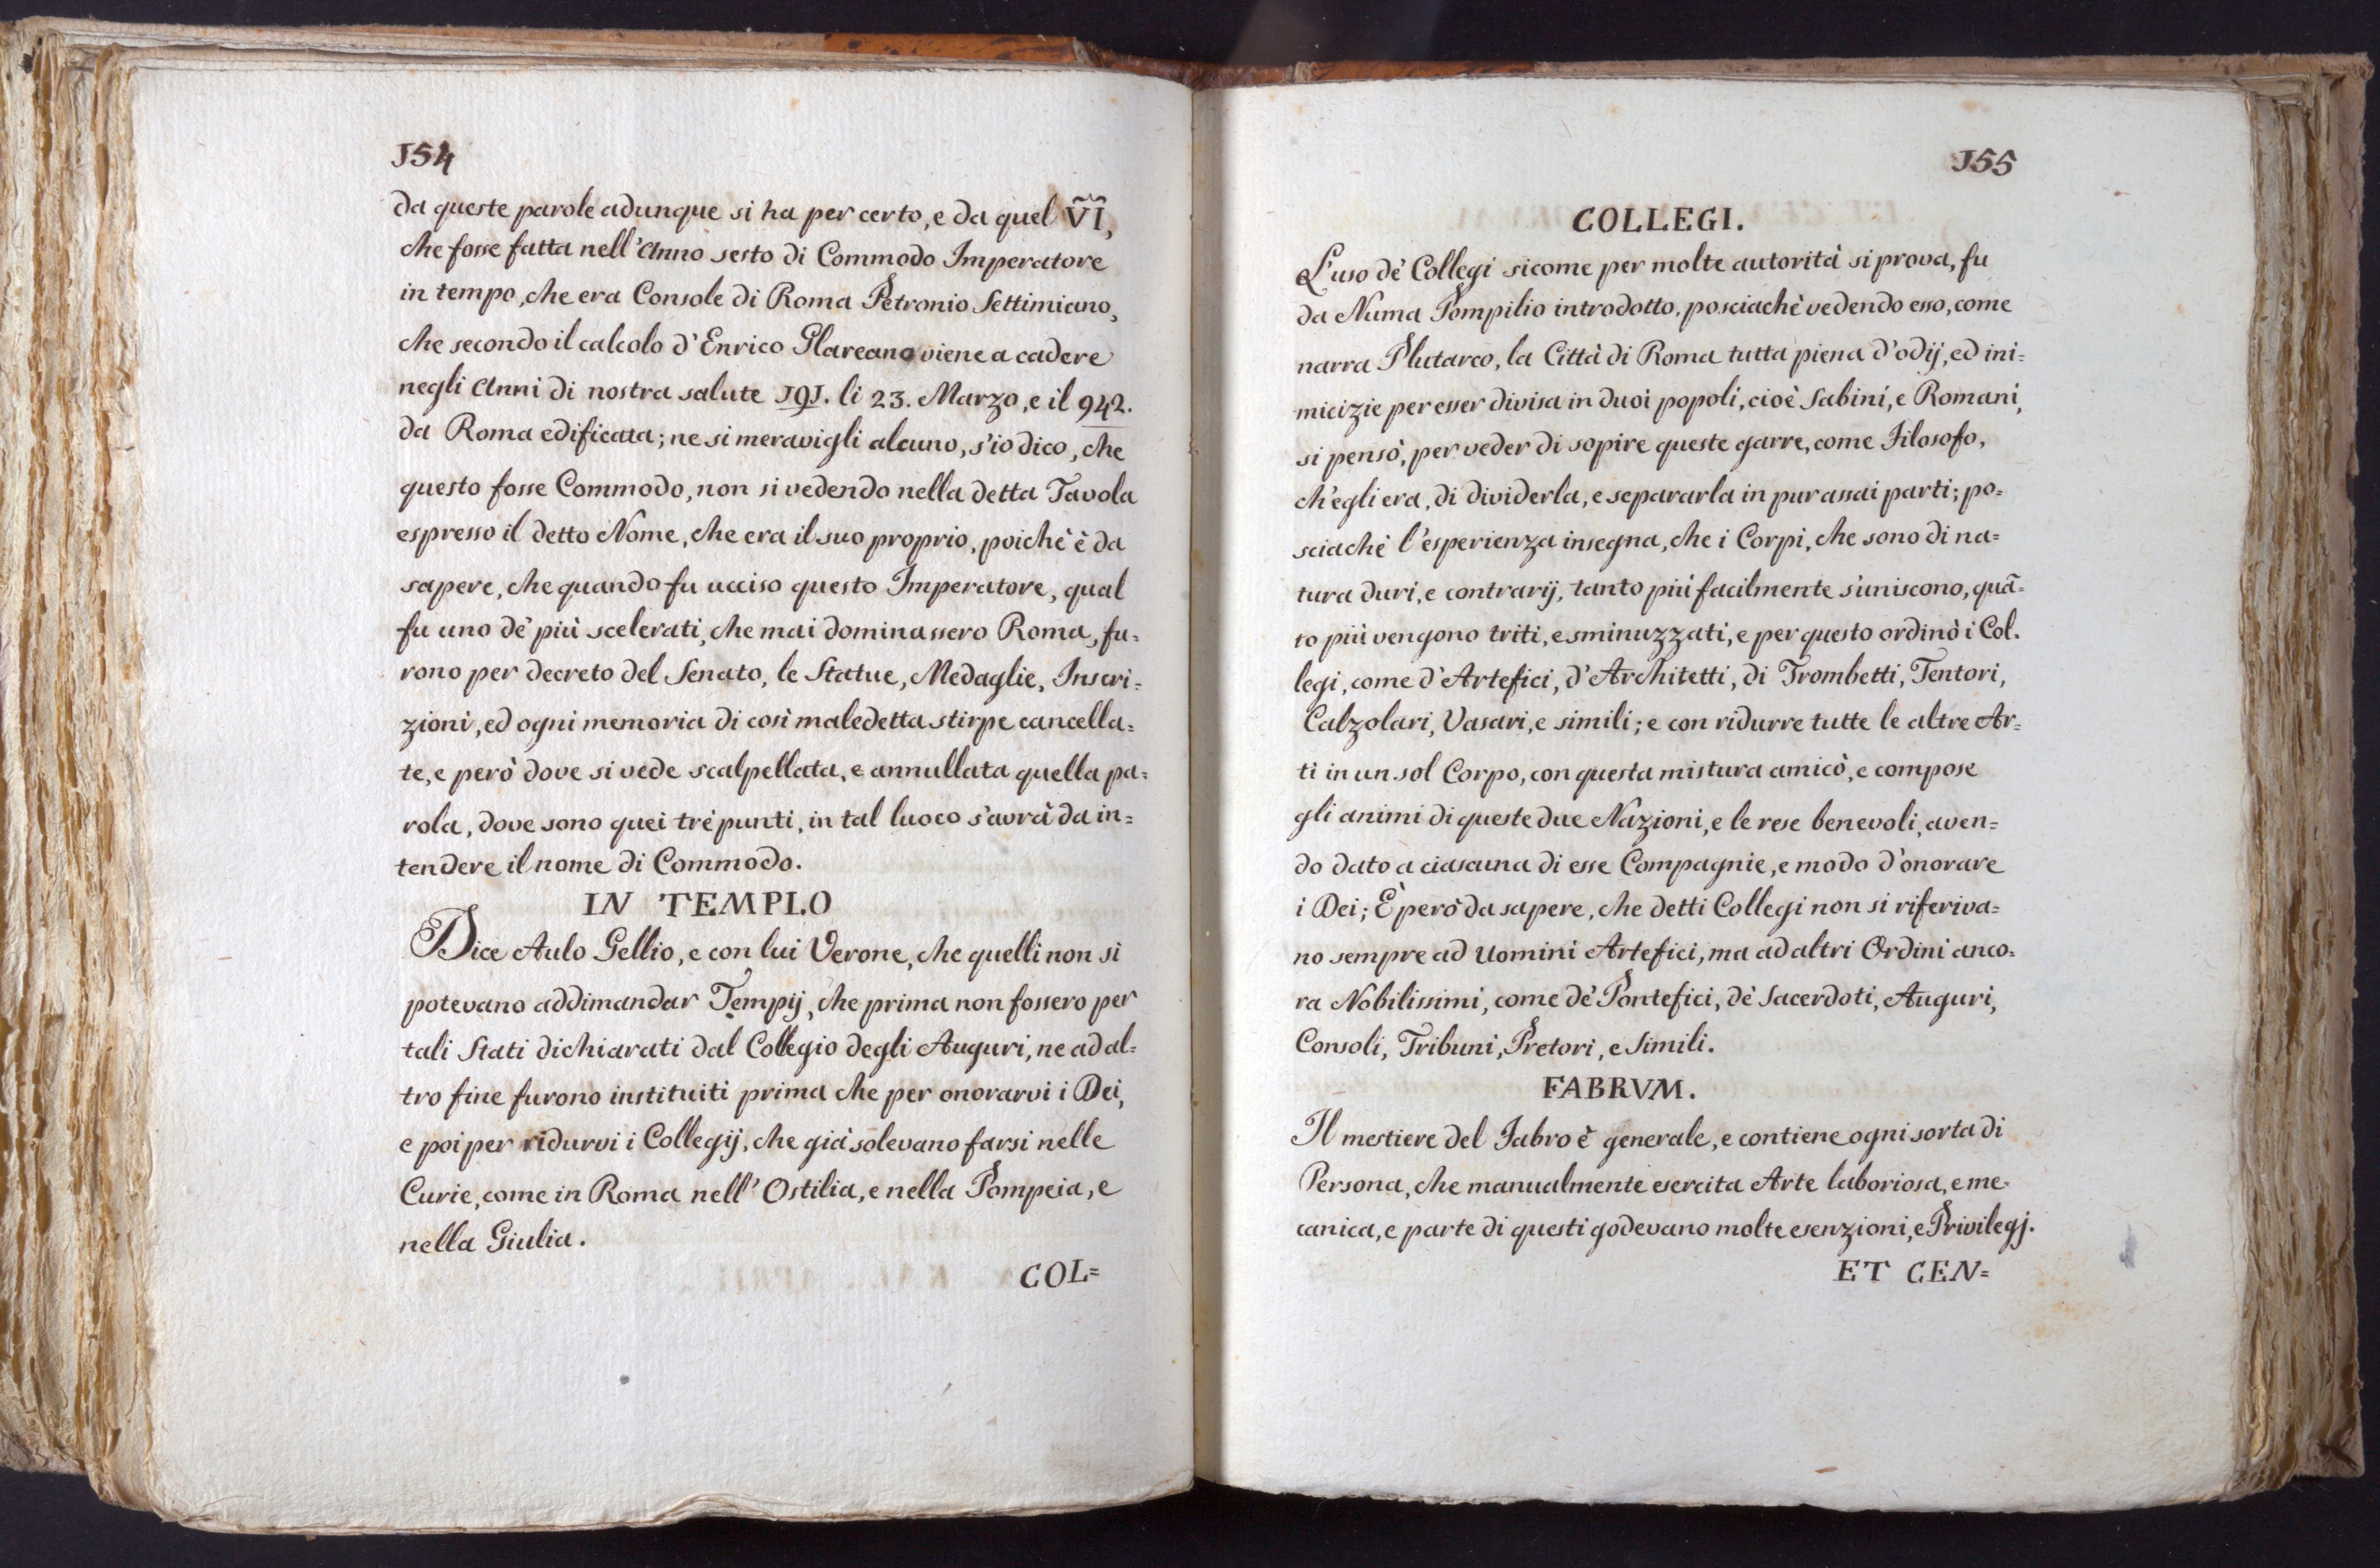 154
da queste parole adunque si ha per certo, e da quel ṼĨ,
che fosse fatta nell'Anno sesto di Commodo Imperatore
in tempo, che era Console di Roma Petronio Settimiano,
che secondo il calcolo d'Enrico Glareano viene a cadere
negli Anni di nostra salute 191. li 23. Marzo, e il 942.
da Roma edificata; ne si meravigli alcuno, s'io dico, che
questo fosse Commodo, non si vedendo nella detta Tavola
espresso il detto Nome, che era il suo proprio, poichè è da
sapere, che quando fu ucciso questo Imperatore, qual
fu uno de' più scelerati, che mai dominassero Roma, fu=
rono per decreto del Senato, le Statue, Medaglie, Inscri=
zioni, ed ogni memoria di così maledetta stirpe cancella=
te, e però dove si vede scalpellata, e annullata quella pa=
rola, dove sono quei trè punti, in tal luoco s'avrà da in=
tendere il nome di Commodo.
IN TEMPLO
Dice Aulo Gellio, e con lui Verone, che quelli non si
potevano addimandar Tempij, che prima non fossero per
tali Stati dichiarati dal Collegio degli Auguri, ne ad al=
tro fine furono instituiti prima che per onorarvi i Dei,
e poi per ridurvi i Collegij, che già solevano farsi nelle
Curie, come in Roma nell'Ostilia, e nella Pompeia, e
nella Giulia.
COL=
155
COLLEGI.
L'uso de' Collegi sicome per molte autorità si prova, fu
da Numa Pompilio introdotto, posciachè vedendo esso, come
narra Plutarco, la Città di Roma tutta piena d'odij, ed ini=
micizie per esser divisa in duoi popoli, cioè Sabini, e Romani,
si pensò, per veder di sopire queste garre, come Filosofo,
ch'egli era, di dividerla, e separarla in pur assai parti; po=
sciachè l'esperienza insegna, che i Corpi, che sono di na=
tura duri, e contrarij, tanto più facilmente s'uniscono, quã=
to più vengono triti, e sminuzzati, e per questo ordinò i Col.
legi, come d'Artefici, d'Architetti, di Trombetti, Tentori,
Calzolari, Vasari, e simili; e con ridurre tutte le altre Ar=
ti in un sol Corpo, con questa mistura amicò, e compose
gli animi di queste due Nazioni, e le rese benevoli, aven=
do dato a ciascuna di esse Compagnie, e modo d'onorare
i Dei; È però da sapere, che detti Collegi non si riferiva=
no sempre ad Uomini Artefici, ma ad altri Ordini anco=
ra Nobilissimi, come de' Pontefici, de' Sacerdoti, Auguri,
Consoli, Tribuni, Pretori, e Simili.
FABRVM.
Il mestiere del Fabro è generale, e contiene ogni sorta di
Persona, che manualmente esercita Arte laboriosa, e me-
canica, e parte di questi godevano molte esenzioni, e Privilegj.
ET CEN=